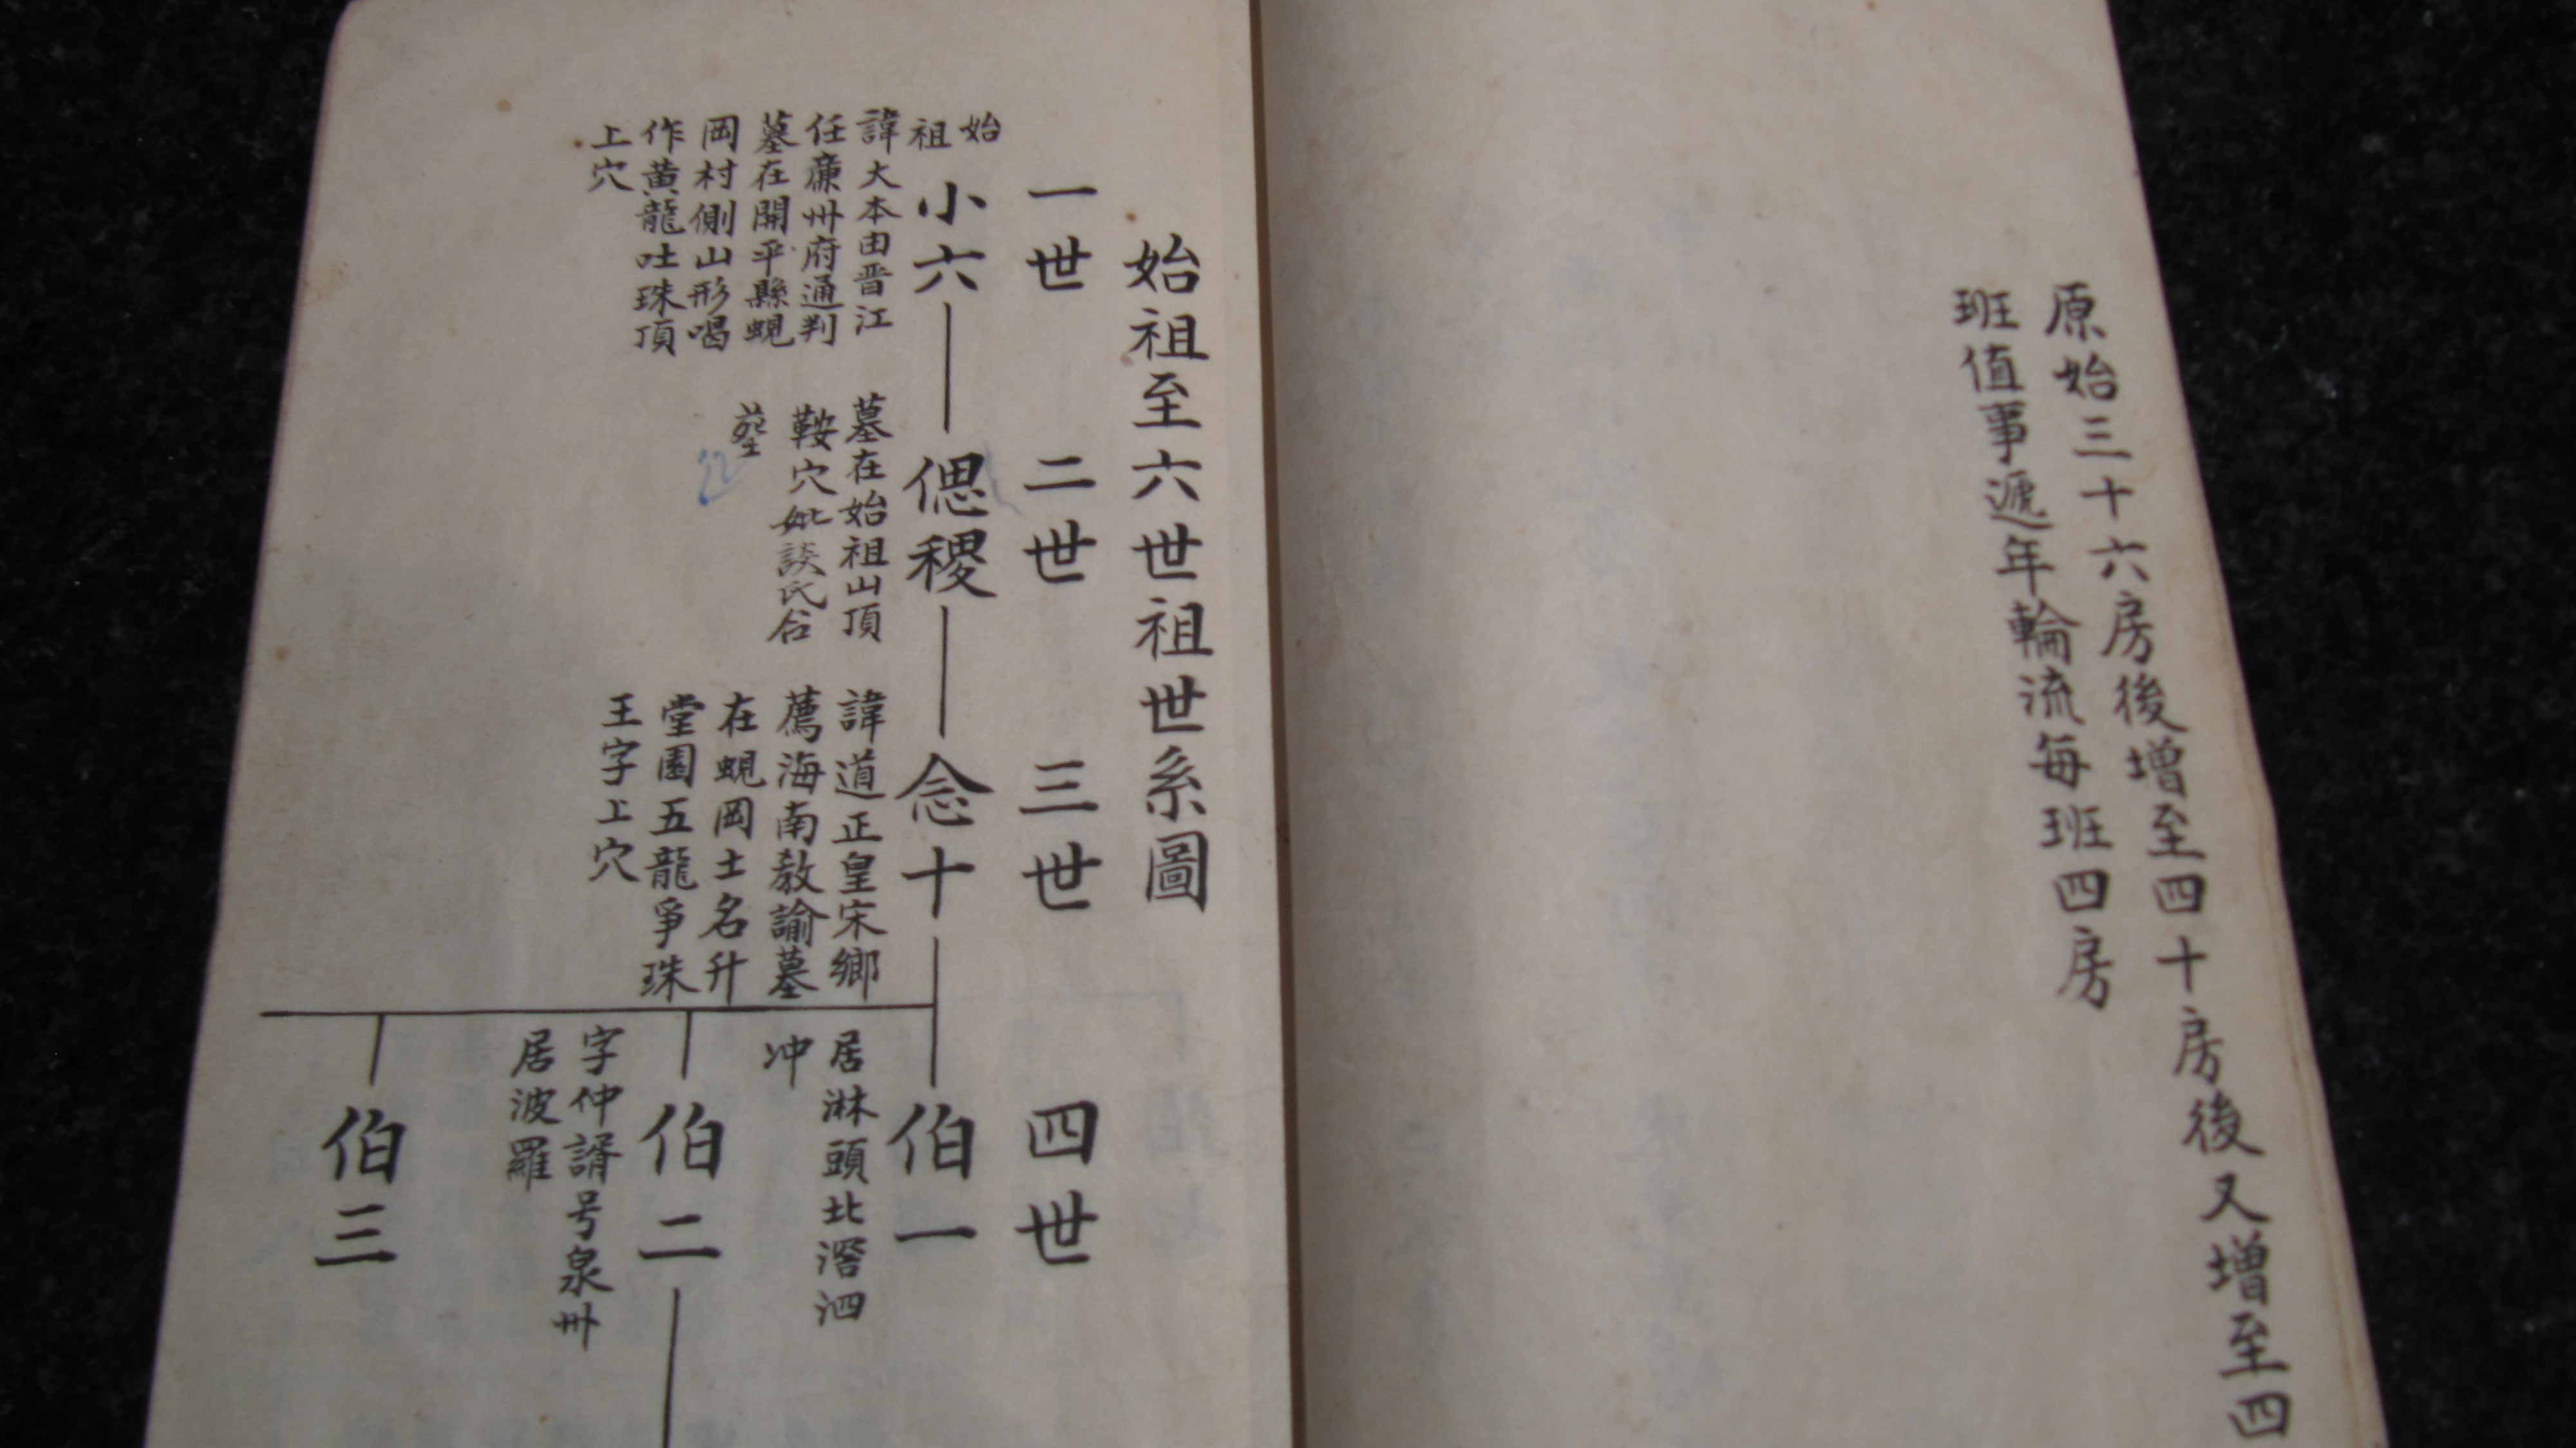 原始三十六房後增至四十房後又增至四
班值事遞年輪流每班四房
始祖至六世祖世系圖
一世 二世 三世 四世
始祖
小六 偲稷 念十 伯一
諱大本由晋江
任廉州府通判
墓在開平縣蜆
岡村側山形喝
作黃龍吐珠頂
上穴
墓在始祖山頂
鞍穴妣談氏合
塟
諱道正皇宋鄉
薦海南教諭墓
在蜆岡土名升
堂園五龍爭珠
王字上穴
居淋頭北滘泗
冲
伯二
字仲諝号泉州
居波羅
伯三